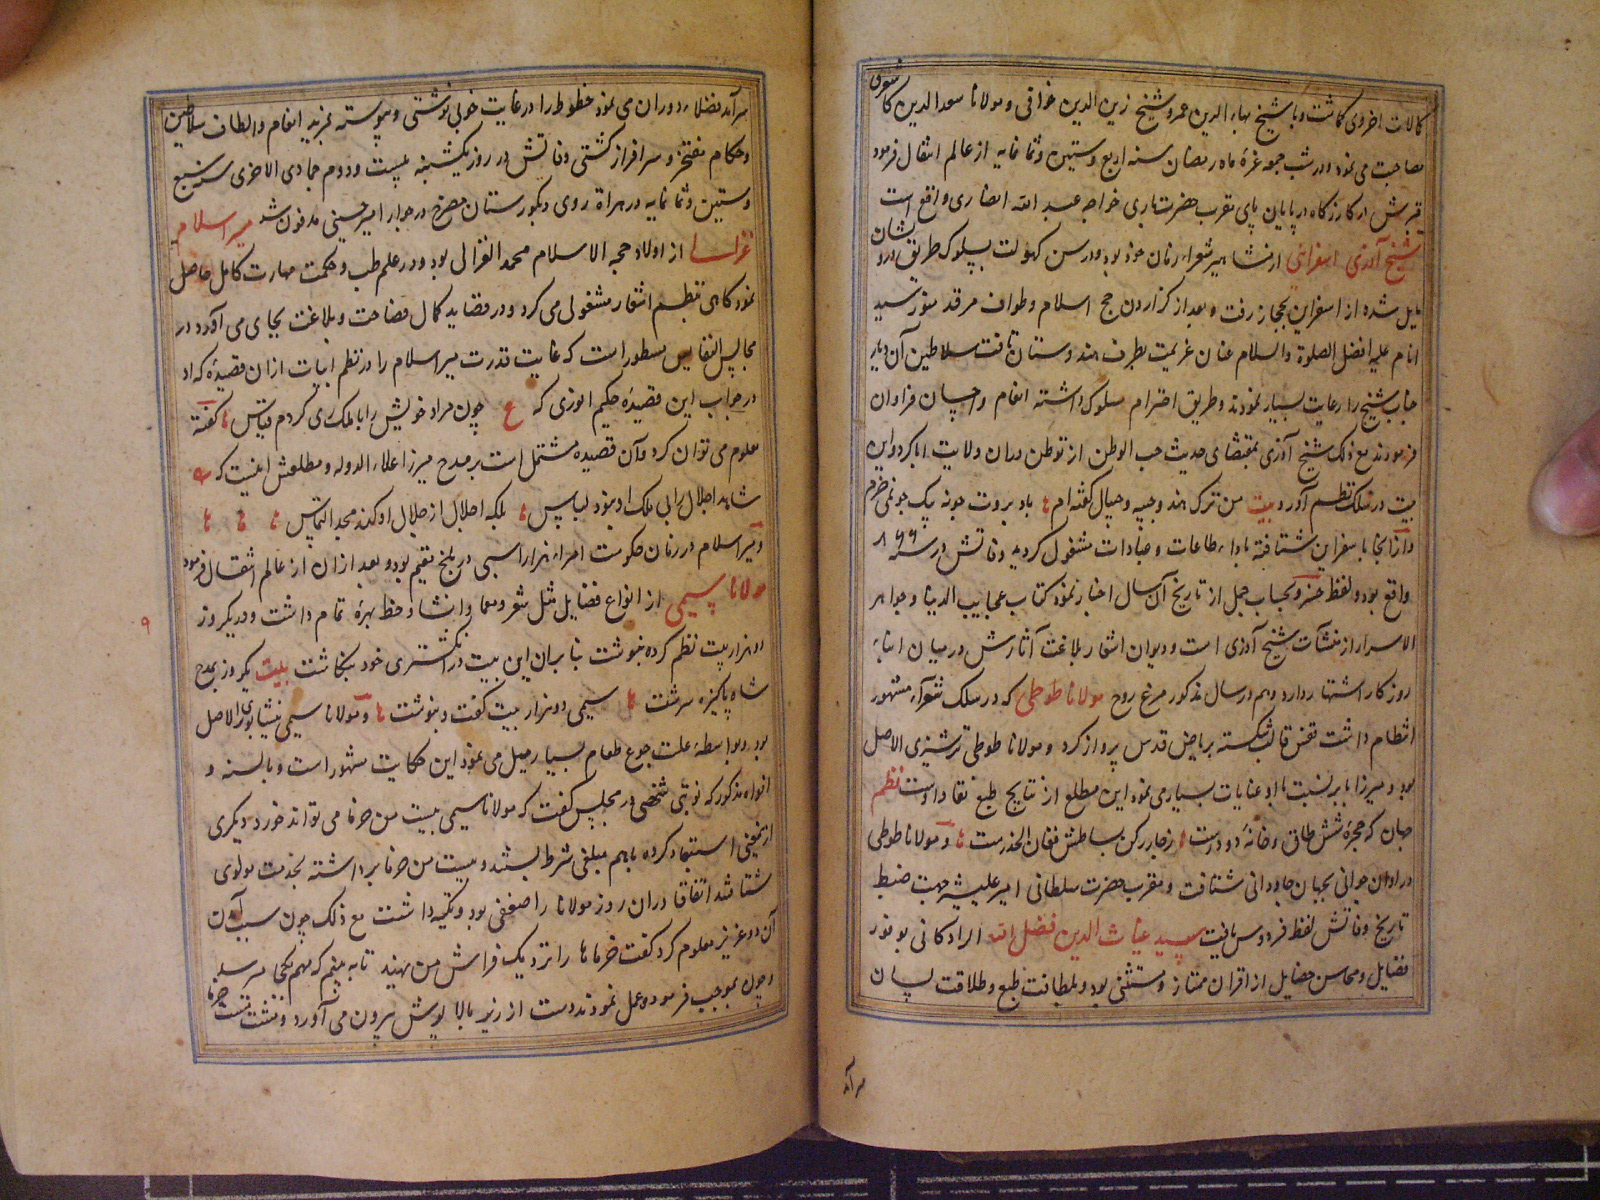 کمالات اخروی گماشت و با شیخ بهاء الدین عمر و شیخ زین الدین خوافی و مولانا سعد الدین کاشغری
مصاحبت می نمود و در شب جمعه غرهٔ ماه رمضان سنه اربع و ستین و ثمانمایه از عالم انتقال فرمود
قبرش در کازرگاه در پایان پای مقرب حضرت باری خواجه عبد الله انصاری واقع است
شیخ آذری اسفراینی از مشاهیر شعراء زمان خود بود و در سن کهولت بسلوک طریق درویشان
مایل شده از اسفراین بحجاز رفت و بعد از گزاردن حج اسلام و طواف مرقد منور سید
انام علیه افضل الصلوة والسلام عنان عزیمت بطرف هندوستان تافت سلاطین آن دیار
جناب شیخ را رعایت بسیار نمودند و طریق احترام مسلوک داشته انعام و احسان فراوان
فرمودند مع ذلک شیخ آذری بمقتضای حدیث حب الوطن از توطن دران ولایت ابا کرد و این
بیت در سلک نظم آورد بیت من ترک هند و جیپه و جیپال گفته ام باد بروت جونه بیک جو نمی خرم
و از آنجا باسفراین شتافته باداء طاعات و عبادات مشغول گردید وفاتش در سنه ۸۶۶
واقع بود و لفظ خسرو بحساب جمل از تاریخ آن سال اخبار نمود کتاب عجایب الدنیا و جواهر
الاسرار از منشآت شیخ آذری است و دیوان اشعار بلاغت آثارش در میان ابنای
روزگار اشتهار دارد و هم در سال مذکور مرغ روح مولانا طوطی که در سلک شعراء مشهور
انتظام داشت قفس قالب شکسته بریاض قدس پرواز کرد و مولانا طوطی ترشیزی الاصل
بود و میرزا بابر نسبت باو عنایات بسیار می نمود این مطلع از نتایج طبع نقاد اوست نظم
جهان که حجرهٔ شش طاق و خانهٔ دو درست ز چار رکن بساطش فغان الحذرست و مولانا طوطی
در اوان جوانی بجهان جاودانی شتافت و مقرب حضرت سلطانی امیر علیشیر جهت ضبط
تاریخ وفاتش لفظ فردوس یافت سید غیاث الدین فضل الله الرادکانی بوفور
فضایل و محاسن خصایل از اقران ممتاز و مستثنی بود و بلطافت طبع و طلاقت لسان
سر آمد
سرآمد فضلاء دوران می نمود خطوط را در غایت خوبی نوشتی و پیوسته بمزید انعام و الطاف سلاطین
و حکام مفتخر و سرافراز گشتی وفاتش در روز یکشنبه بیست و دوم جمادی الاخری سنه سبع
و ستین و ثمانمایه در هراة روی و بگورستان مصرخ در جوار امیر حسینی مدفون شد میر اسلام
غزالی از اولاد حجة الاسلام محمد الغزالی بود و در علم طب و حکمت مهارت کامل حاصل
نمود گاهی بنظم اشعار مشغولی می کرد و در قصاید کمال فصاحت و بلاغت بجای می آورد در
مجالس النفایس مسطور است که غایت قدرت میر اسلام را در نظم ابیات ازان قصیدهٔ که او
در جواب این قصیدهٔ حکیم انوری که ع چون مراد خویش را با ملک ری کردم قیاس گفته
معلوم می توان کرد و آن قصیده مشتمل است بر مدح میرزا علاء الدوله و مطلعش اینست که
شاهد اجلال را بی ملک او نبود لباس بلکه اجلال از جلال او کند مجد التماس
و میر اسلام در زمان حکومت امراء هزار اسبی در بلخ مقیم بود و بعد ازان از عالم انتقال فرمود
مولانا سیمی از انواع فضایل مثل شعر و معما و انشاد حظ بهرهٔ تمام داشت و در یک روز
دو هزار بیت نظم کرده بنوشت بنابران این بیت در انگشتری خود بنگاشت بیت یکروز بمدح
شاه پاکیزه سرشت سیمی دو هزار بیت گفت و بنوشت و مولانا سیمی نیشابوری الاصل
بود و بواسطهٔ علت جوع طعام بسیار میل می نمود این حکایت مشهور است و بالسنه و
افواه مذکور که نوبتی شخصی در مجلس گفت که مولانا سیمی بیست من خرما می تواند خورد دیگری
ازین معنی استبعاد کرده باهم مبلغی شرط بستند و بیست من خرما برداشته بخدمت مولوی
شتافتند اتفاقا دران روز مولانا را ضعفی بود و تکیه داشت مع ذلک چون سبب آمدن
آن دو عزیز معلوم کرد گفت خرماها را نزدیک فراش من بنهید تا به بینم که مهم بکجا میرسد
و چون بموجب فرموده عمل نمودند دست از زیر بالا پوش بیرون می آورد و مشت مشت خرما
۹